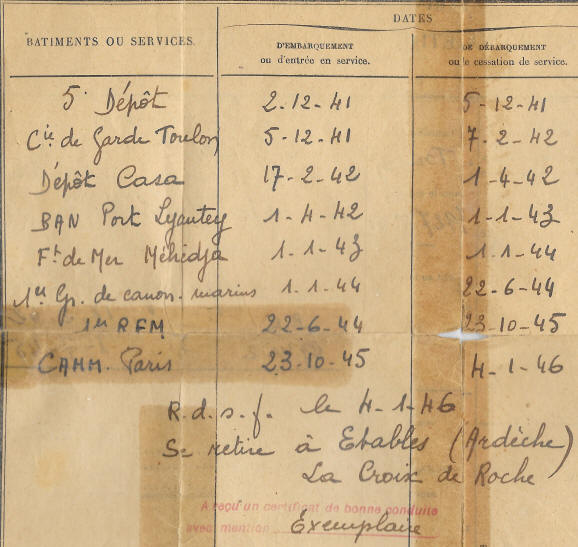 DATES
BATIMENTS OU SERVICES.
D'EMBARQUEMENT
ou d'entrée en service.
DE DÉBARQUEMENT
ou de cessation de service.
5e Dépôt 2-12-41 5-12-41
Cie de Garde Toulon 5-12-41 7-2-42
Dépôt Casa 17-2-42 1-4-42
BAN Port Lyautey 1-4-42 1-1-43
Ft de Mer Mehidja 1-1-43 1-1-44
1er Gp. de canon. marins 1-1-44 22-6-44
1er RFM 22-6-44 23-10-45
CAMM. Paris 23-10-45 4-1-46
R.d.s.f. le 4-1-46
Se retire à Etables (Ardèche)
La Croix de Roche
A reçu un certificat de bonne conduite
avec mention Exemplaire